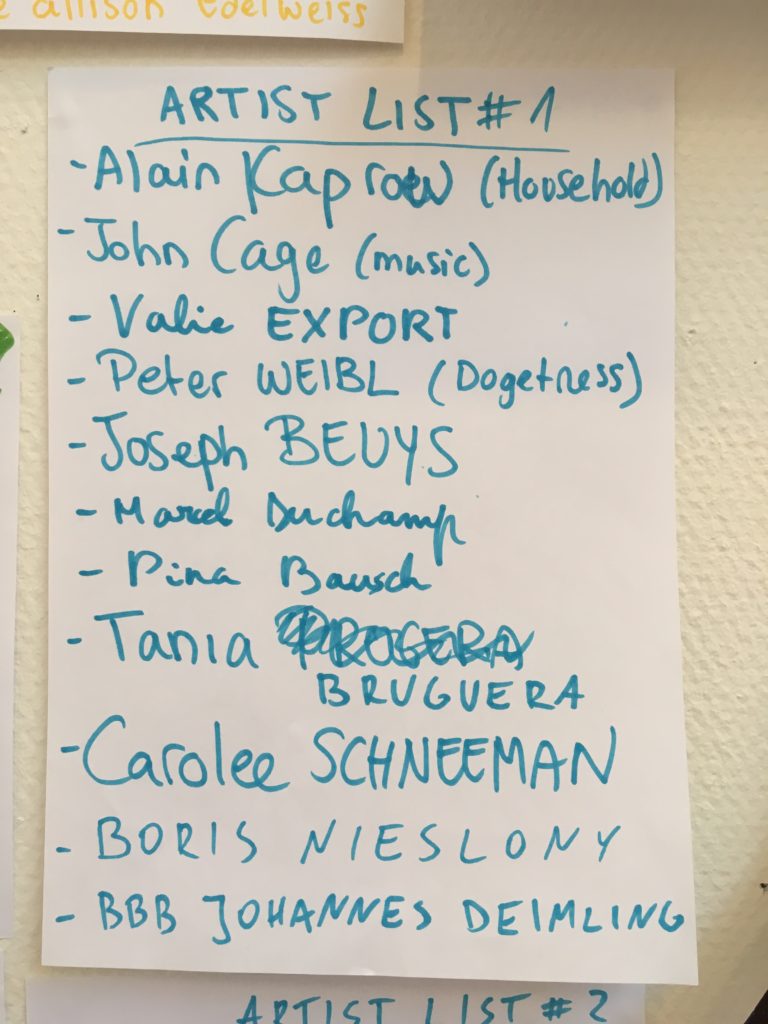 allison Edelweiss
ARTIST LIST #1
- Alain Kaprow (Household)
- John Cage (music)
- Valie EXPORT
- Peter WEIBL (Dogetness)
- Joseph BEUYS
- Marcel Duchamp
- Pina Bausch
- Tania
BRUGUERA
- Carolee SCHNEEMAN
- BORIS NIESLONY
- BBB JOHANNES DEIMLING
ARTIST LIST #2